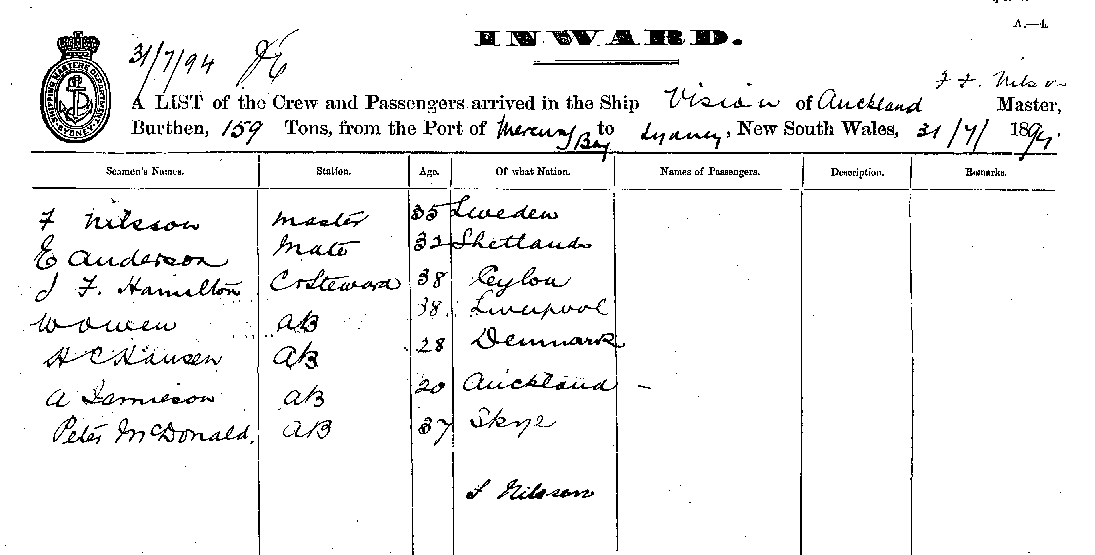 A.—4.
INWARD.
31/7/94 JE
F. F. Nilson
A LIST of the Crew and Passengers arrived in the Ship Vision of Auckland Master,
Burthen, 159 Tons, from the Port of Mercury Bay to Sydney, New South Wales, 31/7/ 1894.
Seamen's Names. Station. Age. Of what Nation. Names of Passengers. Description. Remarks.
F Nilsson Master 35 Sweden
E Anderson Mate 32 Shetlands
J F. Hamilton C & Steward 38 Ceylon
W Owen AB 38. Liverpool
H C Hansen AB 28 Denmark
A Jamieson AB 20 Auckland —
Peter McDonald, AB 37 Skye
F Nilsson